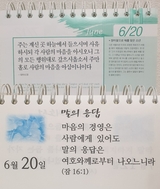 June 6/20
주는 계신 곳 하늘에서 들으시며 사유
하시되 각 사람의 마음을 아시오니 그
의 모든 행위대로 갚으시옵소서 주만
홀로 사람의 마음을 아심이니이다
말의 응답
마음의 경영은
사람에게 있어도
말의 응답은
여호와께로부터 나오느니라
(잠 16:1)
6월 20일